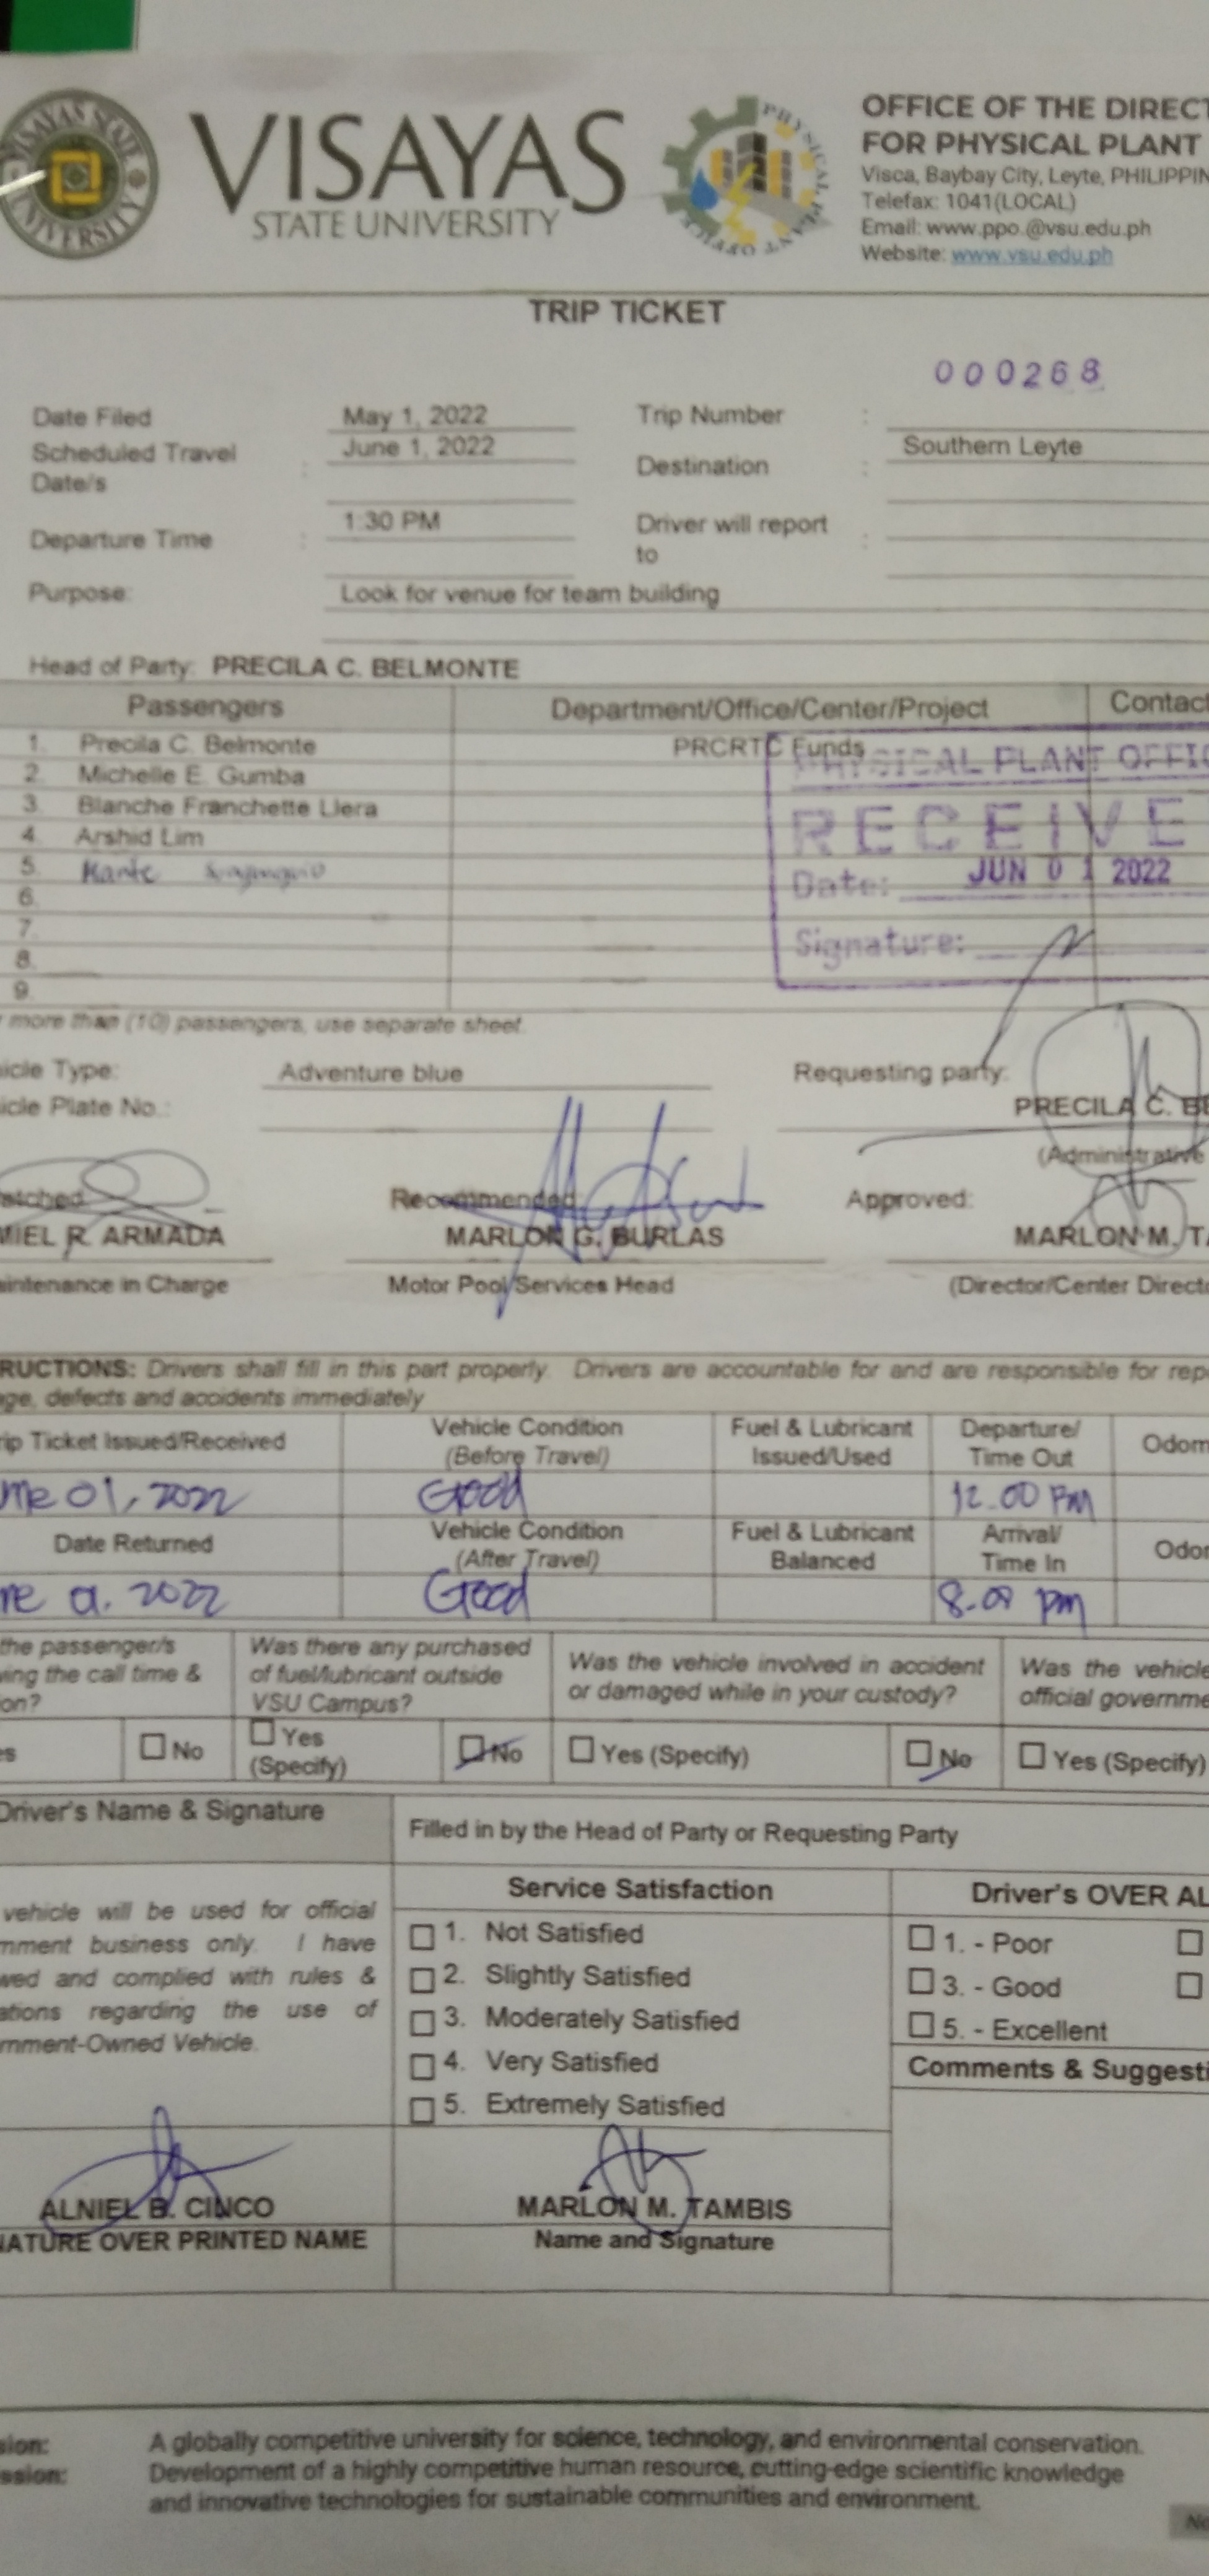 VISAYAS STATE UNIVERSITY
VISAYAS
STATE UNIVERSITY
PHYSICAL PLANT OFFICE
OFFICE OF THE DIRECT
FOR PHYSICAL PLANT
Visca, Baybay City, Leyte, PHILIPPIN
Telefax: 1041(LOCAL)
Email: www.ppo.@vsu.edu.ph
Website: www.vsu.edu.ph
TRIP TICKET
000268
Date Filed May 1, 2022 Trip Number :
Scheduled Travel Date/s : June 1, 2022 Destination : Southern Leyte
Departure Time : 1:30 PM Driver will report to :
Purpose: Look for venue for team building
Head of Party: PRECILA C. BELMONTE
Passengers Department/Office/Center/Project Contact
1. Precila C. Belmonte PRCRTC Funds
2. Michelle E. Gumba
3. Blanche Franchette Llera
4. Arshid Lim
5.
6.
7.
8.
9.
PHYSICAL PLANT OFFIC
RECEIVE
Date: JUN 01 2022
Signature:
more than (10) passengers, use separate sheet.
icle Type: Adventure blue Requesting party:
icle Plate No.: PRECILA C. BE
(Administrative
atched Recommended: Approved:
MIEL R. ARMADA MARLON G. BURLAS MARLON M. TA
aintenance in Charge Motor Pool Services Head (Director/Center Directo
RUCTIONS: Drivers shall fill in this part properly. Drivers are accountable for and are responsible for rep
ge, defects and accidents immediately
rip Ticket Issued/Received Vehicle Condition (Before Travel) Fuel & Lubricant Issued/Used Departure/ Time Out Odom
une 01, 2022 Good 12.00 PM
Date Returned Vehicle Condition (After Travel) Fuel & Lubricant Balanced Arrival/ Time In Odor
ne 01. 2022 Good 8.00 pm
the passenger/s Was there any purchased Was the vehicle involved in accident Was the vehicle
ving the call time & of fuel/lubricant outside or damaged while in your custody? official governme
on? VSU Campus?
s No Yes (Specify) No Yes (Specify) No Yes (Specify)
Driver's Name & Signature Filled in by the Head of Party or Requesting Party
Service Satisfaction Driver's OVER AL
vehicle will be used for official
nment business only. I have
wed and complied with rules &
ations regarding the use of
rnment-Owned Vehicle.
1. Not Satisfied
2. Slightly Satisfied
3. Moderately Satisfied
4. Very Satisfied
5. Extremely Satisfied
1. - Poor
3. - Good
5. - Excellent
Comments & Suggesti
ALNIEL B. CINCO MARLON M. TAMBIS
NATURE OVER PRINTED NAME Name and Signature
sion: A globally competitive university for science, technology, and environmental conservation.
ssion: Development of a highly competitive human resource, cutting-edge scientific knowledge
and innovative technologies for sustainable communities and environment.
No